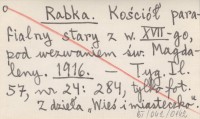 Rabka. Kościół para-
fialny stary z w. XVII-go,
pod wezwaniem św. Magda-
leny. 1916. — Tyg. Il.
57, nr 24: 284, tylko fot.
Z dzieła „Wieś i miasteczko".